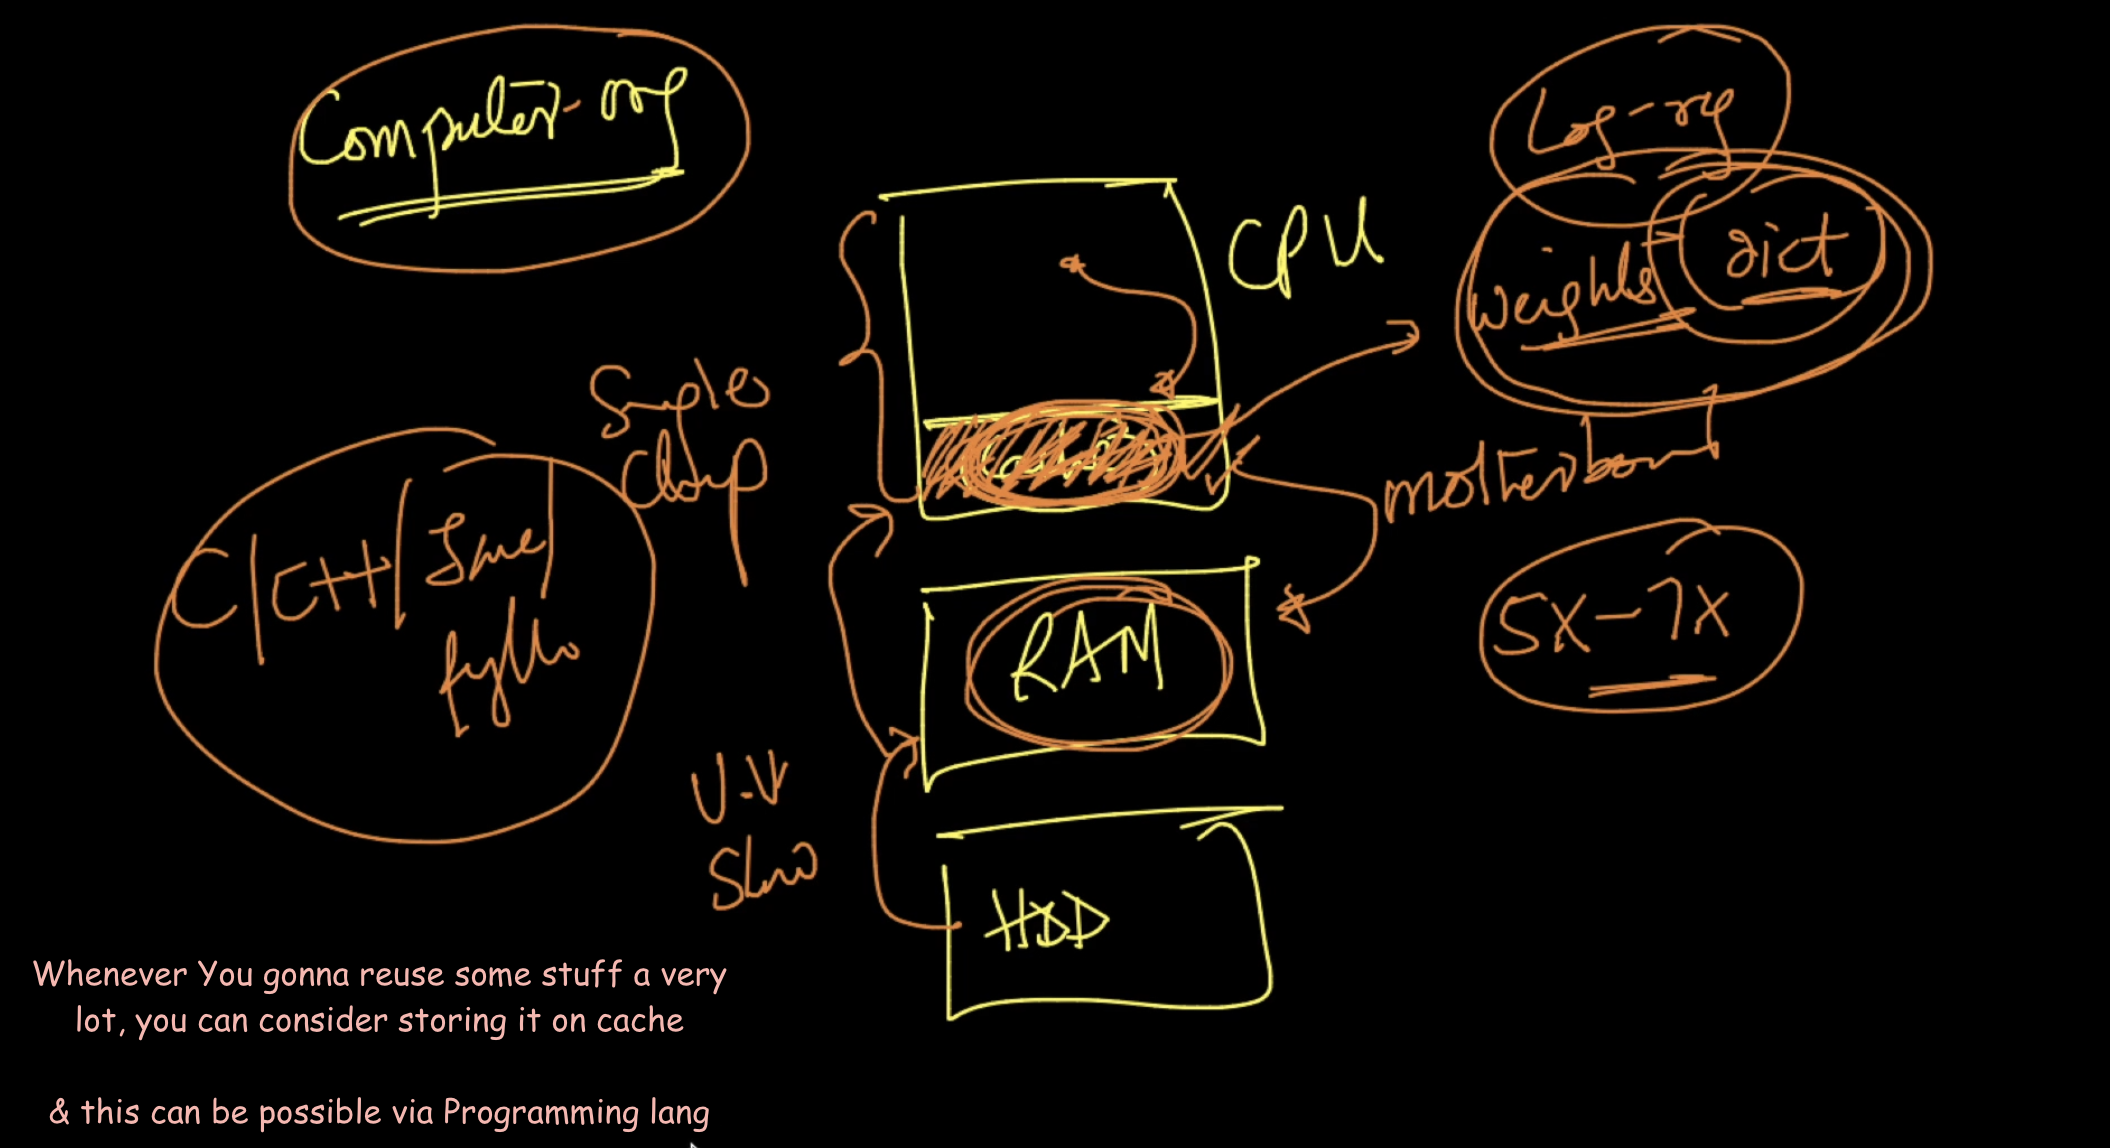 Computer-org
Log-reg
CPU
weights
dict
cache
Single
Chip
motherboard
C/C++/Java/
Python
RAM
5X-7X
V.V
Slow
HDD
Whenever You gonna reuse some stuff a very
lot, you can consider storing it on cache
& this can be possible via Programming lang